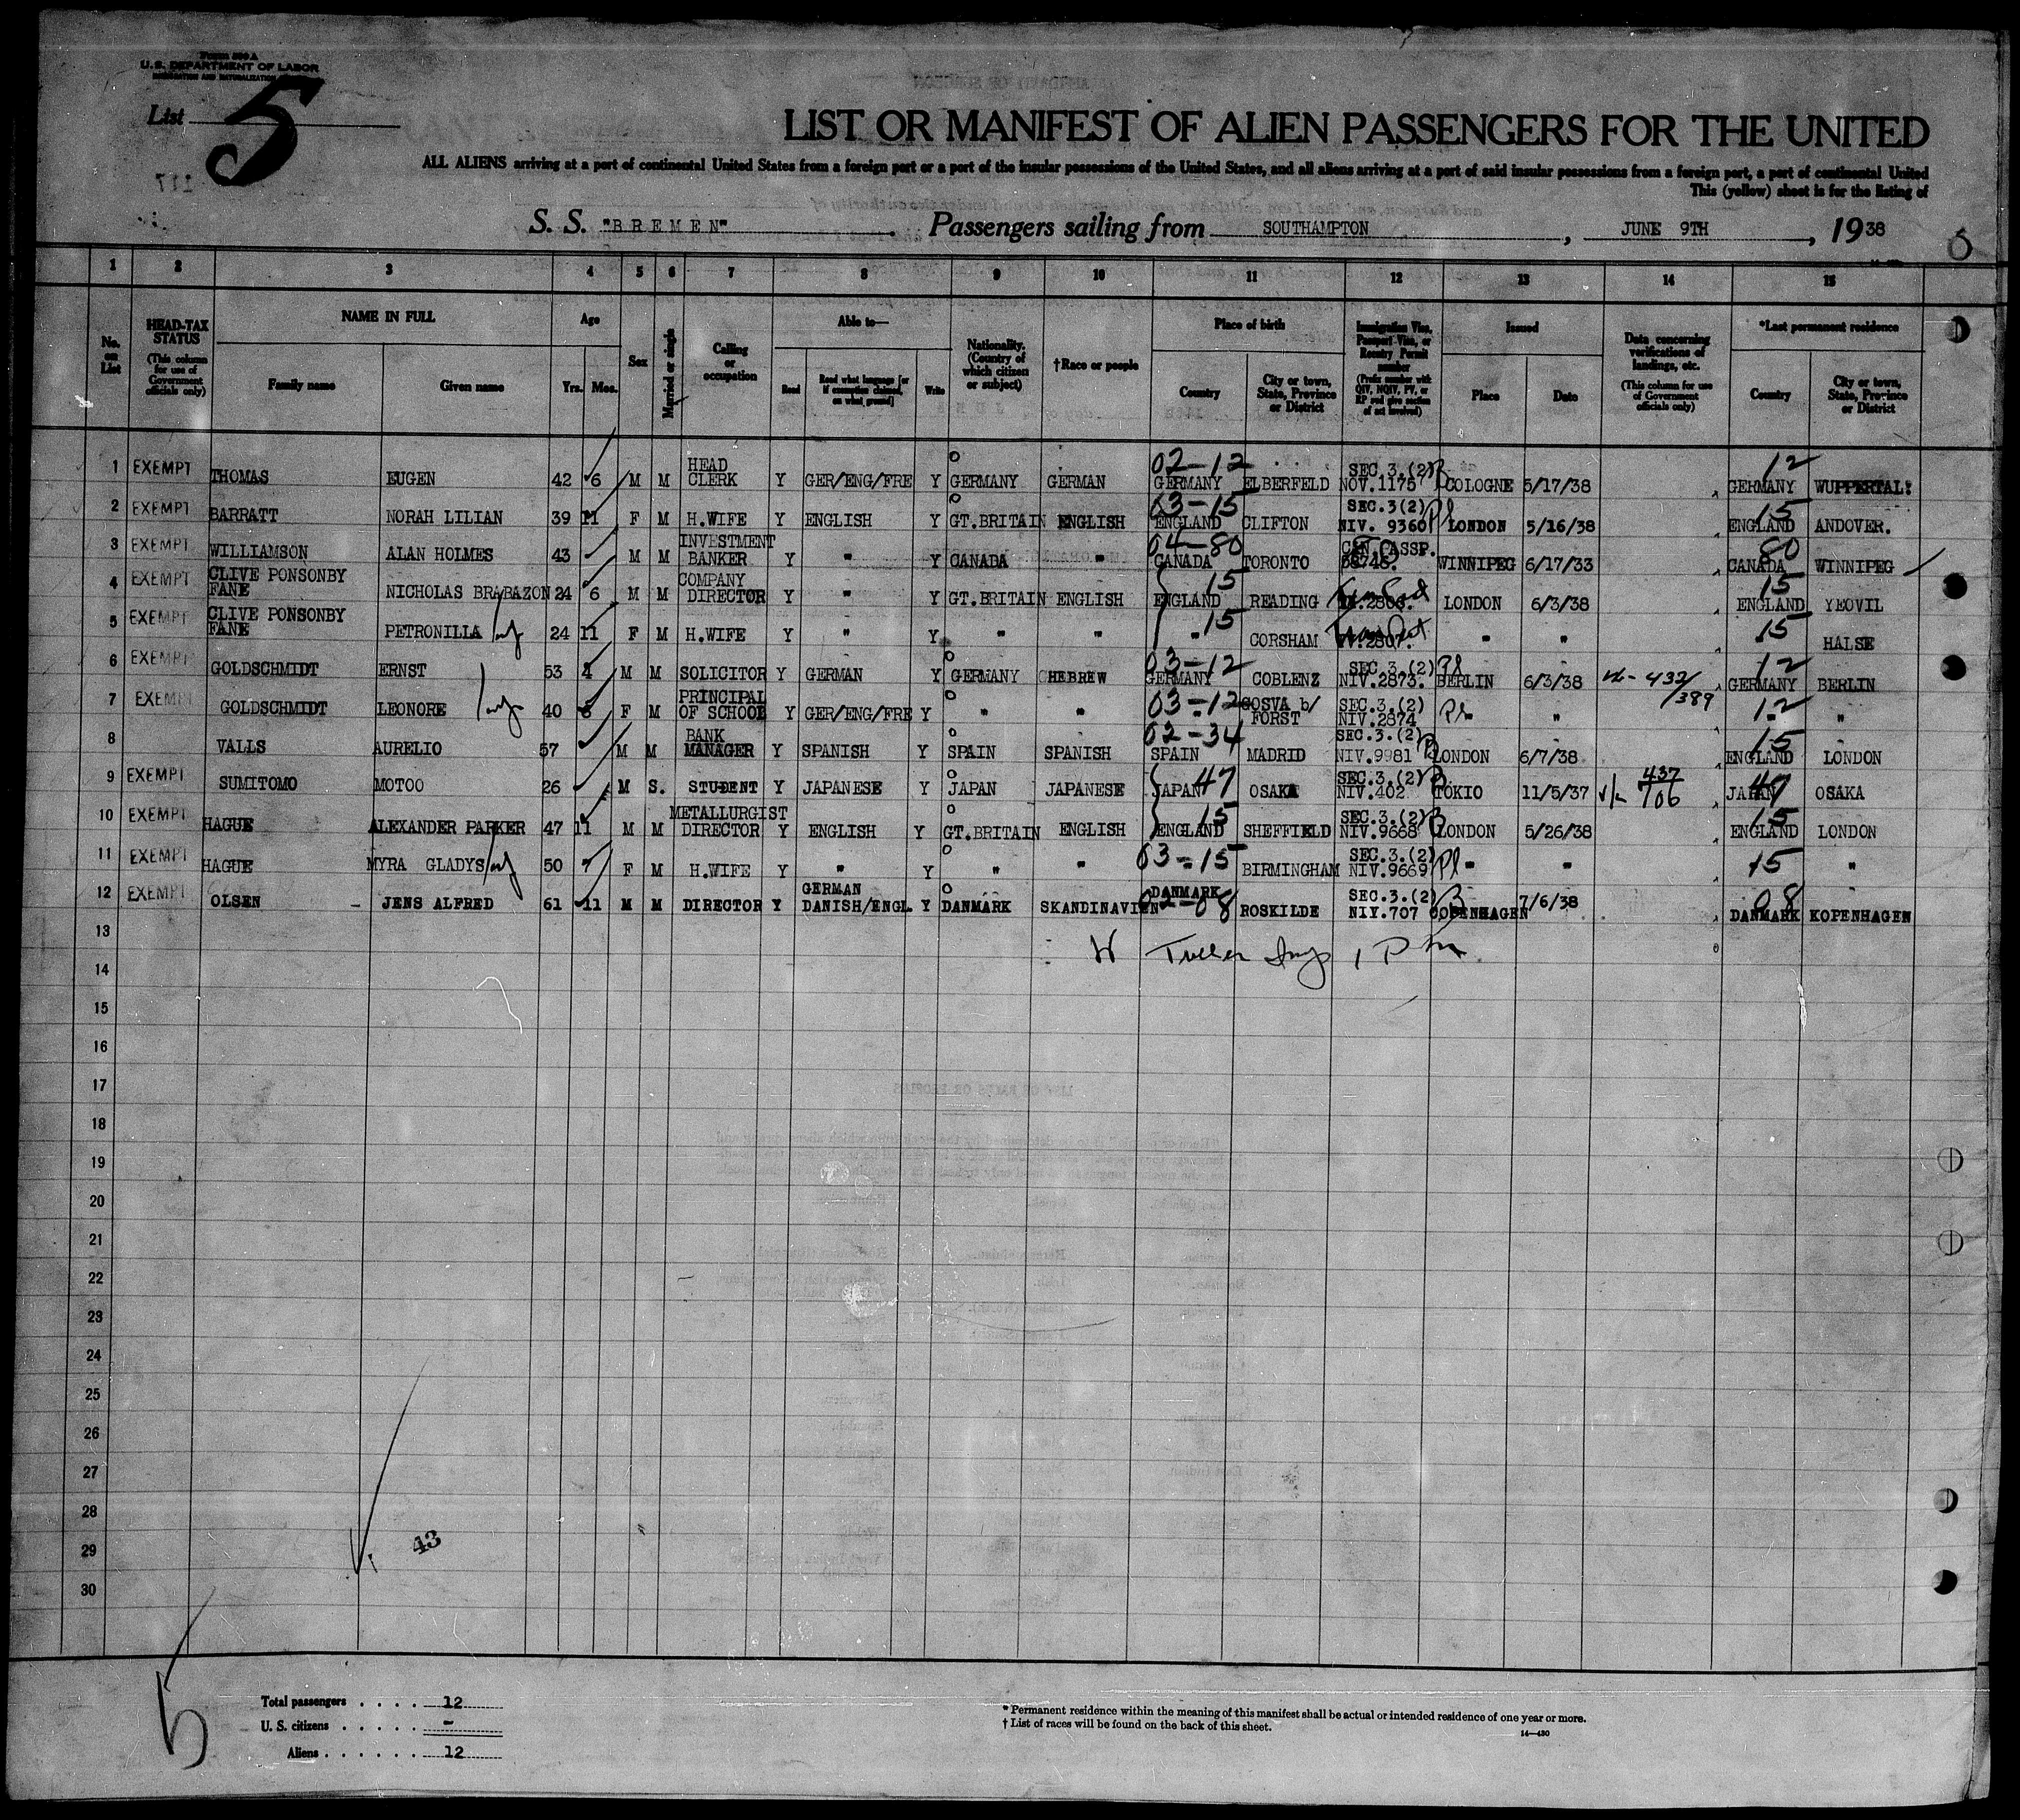 Form 500 A
U. S. DEPARTMENT OF LABOR
IMMIGRATION AND NATURALIZATION
List 5
LIST OR MANIFEST OF ALIEN PASSENGERS FOR THE UNITED
ALL ALIENS arriving at a port of continental United States from a foreign port or a port of the insular possessions of the United States, and all aliens arriving at a port of said insular possessions from a foreign port, a port of continental United
This (yellow) sheet is for the listing of
S. S. "BREMEN" Passengers sailing from SOUTHAMPTON, JUNE 9TH, 1938
1 2 3 4 5 6 7 8 9 10 11 12 13 14 15
No. on List
HEAD-TAX STATUS (This column for use of Government officials only)
NAME IN FULL Family name Given name
Age Yrs. Mos.
Sex
Married or single
Calling or occupation
Able to— Read Read what language [or if exemption claimed, on what ground] Write
Nationality. (Country of which citizen or subject)
†Race or people
Place of birth Country City or town, State, Province or District
Immigration Visa, Passport Visa, or Reentry Permit number (Prefix number with QIV, NQIV, PV, or RP and give section of act involved)
Issued Place Date
Data concerning verifications of landings, etc. (This column for use of Government officials only)
*Last permanent residence Country City or town, State, Province or District
1 EXEMPT THOMAS EUGEN 42 6 M M HEAD CLERK Y GER/ENG/FRE Y GERMANY GERMAN 02-12 GERMANY ELBERFELD SEC.3.(2) NOV.1175 COLOGNE 5/17/38 12 GERMANY WUPPERTAL:
2 EXEMPT BARRATT NORAH LILIAN 39 11 F M H.WIFE Y ENGLISH Y GT.BRITAIN ENGLISH 03-15 ENGLAND CLIFTON SEC.3(2) NIV. 9360 Pl LONDON 5/16/38 15 ENGLAND ANDOVER.
3 EXEMPT WILLIAMSON ALAN HOLMES 43 M M INVESTMENT BANKER Y " Y CANADA " 04-80 CANADA TORONTO CAN.PASSP. WINNIPEG 6/17/33 80 CANADA WINNIPEG
4 EXEMPT CLIVE PONSONBY FANE NICHOLAS BRABAZON 24 6 M M COMPANY DIRECTOR Y " Y GT.BRITAIN ENGLISH 15 ENGLAND READING LONDON 6/3/38 15 ENGLAND YEOVIL
5 EXEMPT CLIVE PONSONBY FANE PETRONILLA 24 11 F M H.WIFE Y " Y " " 15 " CORSHAM " " 15 " HALSE
6 EXEMPT GOLDSCHMIDT ERNST 53 4 M M SOLICITOR Y GERMAN Y GERMANY HEBREW 03-12 GERMANY COBLENZ SEC.3.(2) NIV.2873. Pl BERLIN 6/3/38 432/389 12 GERMANY BERLIN
7 EXEMPT GOLDSCHMIDT LEONORE 40 6 F M PRINCIPAL OF SCHOOL Y GER/ENG/FRE Y " " 03-12 " GOSVA b/ FORST SEC.3.(2) NIV.2874 Pl " " 12 " "
8 VALLS AURELIO 57 M M BANK MANAGER Y SPANISH Y SPAIN SPANISH 02-34 SPAIN MADRID SEC.3.(2) NIV.9981 LONDON 6/7/38 15 ENGLAND LONDON
9 EXEMPT SUMITOMO MOTOO 26 M S. STUDENT Y JAPANESE Y JAPAN JAPANESE JAPAN 47 OSAKA SEC.3.(2) NIV.402. TOKIO 11/5/37 437/706 47 JAPAN OSAKA
10 EXEMPT HAGUE ALEXANDER PARKER 47 11 M M METALLURGIST DIRECTOR Y ENGLISH Y GT.BRITAIN ENGLISH 15 ENGLAND SHEFFIELD SEC.3.(2) NIV.9668 LONDON 5/26/38 15 ENGLAND LONDON
11 EXEMPT HAGUE MYRA GLADYS 50 7 F M H.WIFE Y " Y " " 03-15 BIRMINGHAM SEC.3.(2) NIV.9669 Pl " " 15 "
12 EXEMPT OLSEN - JENS ALFRED 61 11 M M DIRECTOR Y GERMAN DANISH/ENGL. Y DANMARK SKANDINAVIEN DANMARK 02-08 ROSKILDE SEC.3.(2) NIV.707 COPENHAGEN 7/6/38 08 DANMARK KOPENHAGEN
13
14
15
16
17
18
19
20
21
22
23
24
25
26
27
28
29
30
43
Total passengers . . . . 12
U. S. citizens . . . . . -
Aliens . . . . . . 12
* Permanent residence within the meaning of this manifest shall be actual or intended residence of one year or more.
† List of races will be found on the back of this sheet.
14—430